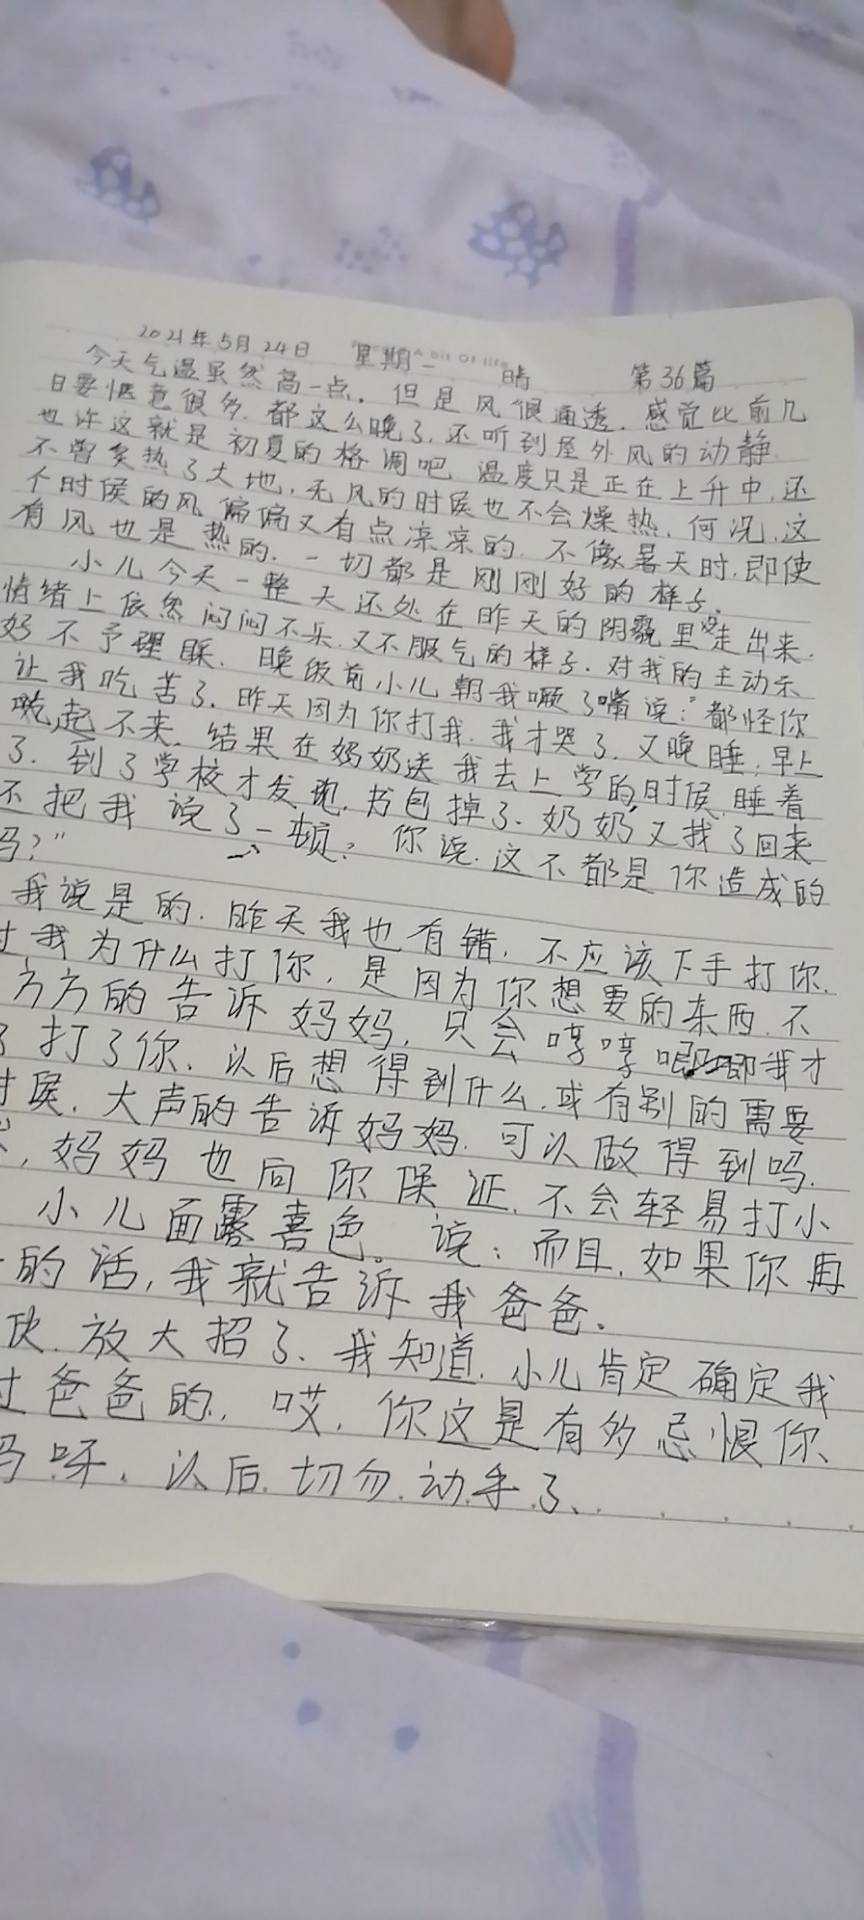 2021年5月24日 星期一 A bit Of life 晴 第36篇
今天气温虽然高一点。但是风很通透。感觉比前几
日要惬意很多。都这么晚了,还听到屋外风的动静。
也许这就是初夏的格调吧。温度只是正在上升中,还
不曾炙热了大地,无风的时侯也不会燥热,何况,这
个时侯的风偏偏又有点凉凉的。不像暑天时,即使
有风也是热的。一切都是刚刚好的样子。
小儿今天一整天还处在昨天的阴霾里没走出来。
情绪上依然闷闷不乐,又不服气的样子。对我的主动示
好不予理睬。晚饭前小儿朝我噘了嘴说:"都怪你
让我吃苦了。昨天因为你打我,我才哭了,又晚睡,早上
起不来。结果在奶奶送我去上学的时侯,睡着
了。到了学校才发现,书包掉了。奶奶又找了回来
还把我说了一顿。你说,这不都是你造成的
吗?"
我说是的。昨天我也有错。不应该下手打你。
过我为什么打你,是因为你想要的东西,不
方方的告诉妈妈,只会哼哼唧唧我才
了打了你。以后想得到什么,或有别的需要
时侯,大声的告诉妈妈。可以做得到吗。
,妈妈也向你保证,不会轻易打小
小儿面露喜色。说:而且,如果你再
的话,我就告诉我爸爸。
快,放大招了、我知道,小儿肯定确定我
过爸爸的,哎,你这是有多忌恨你
妈呀、以后,切勿动手了、......